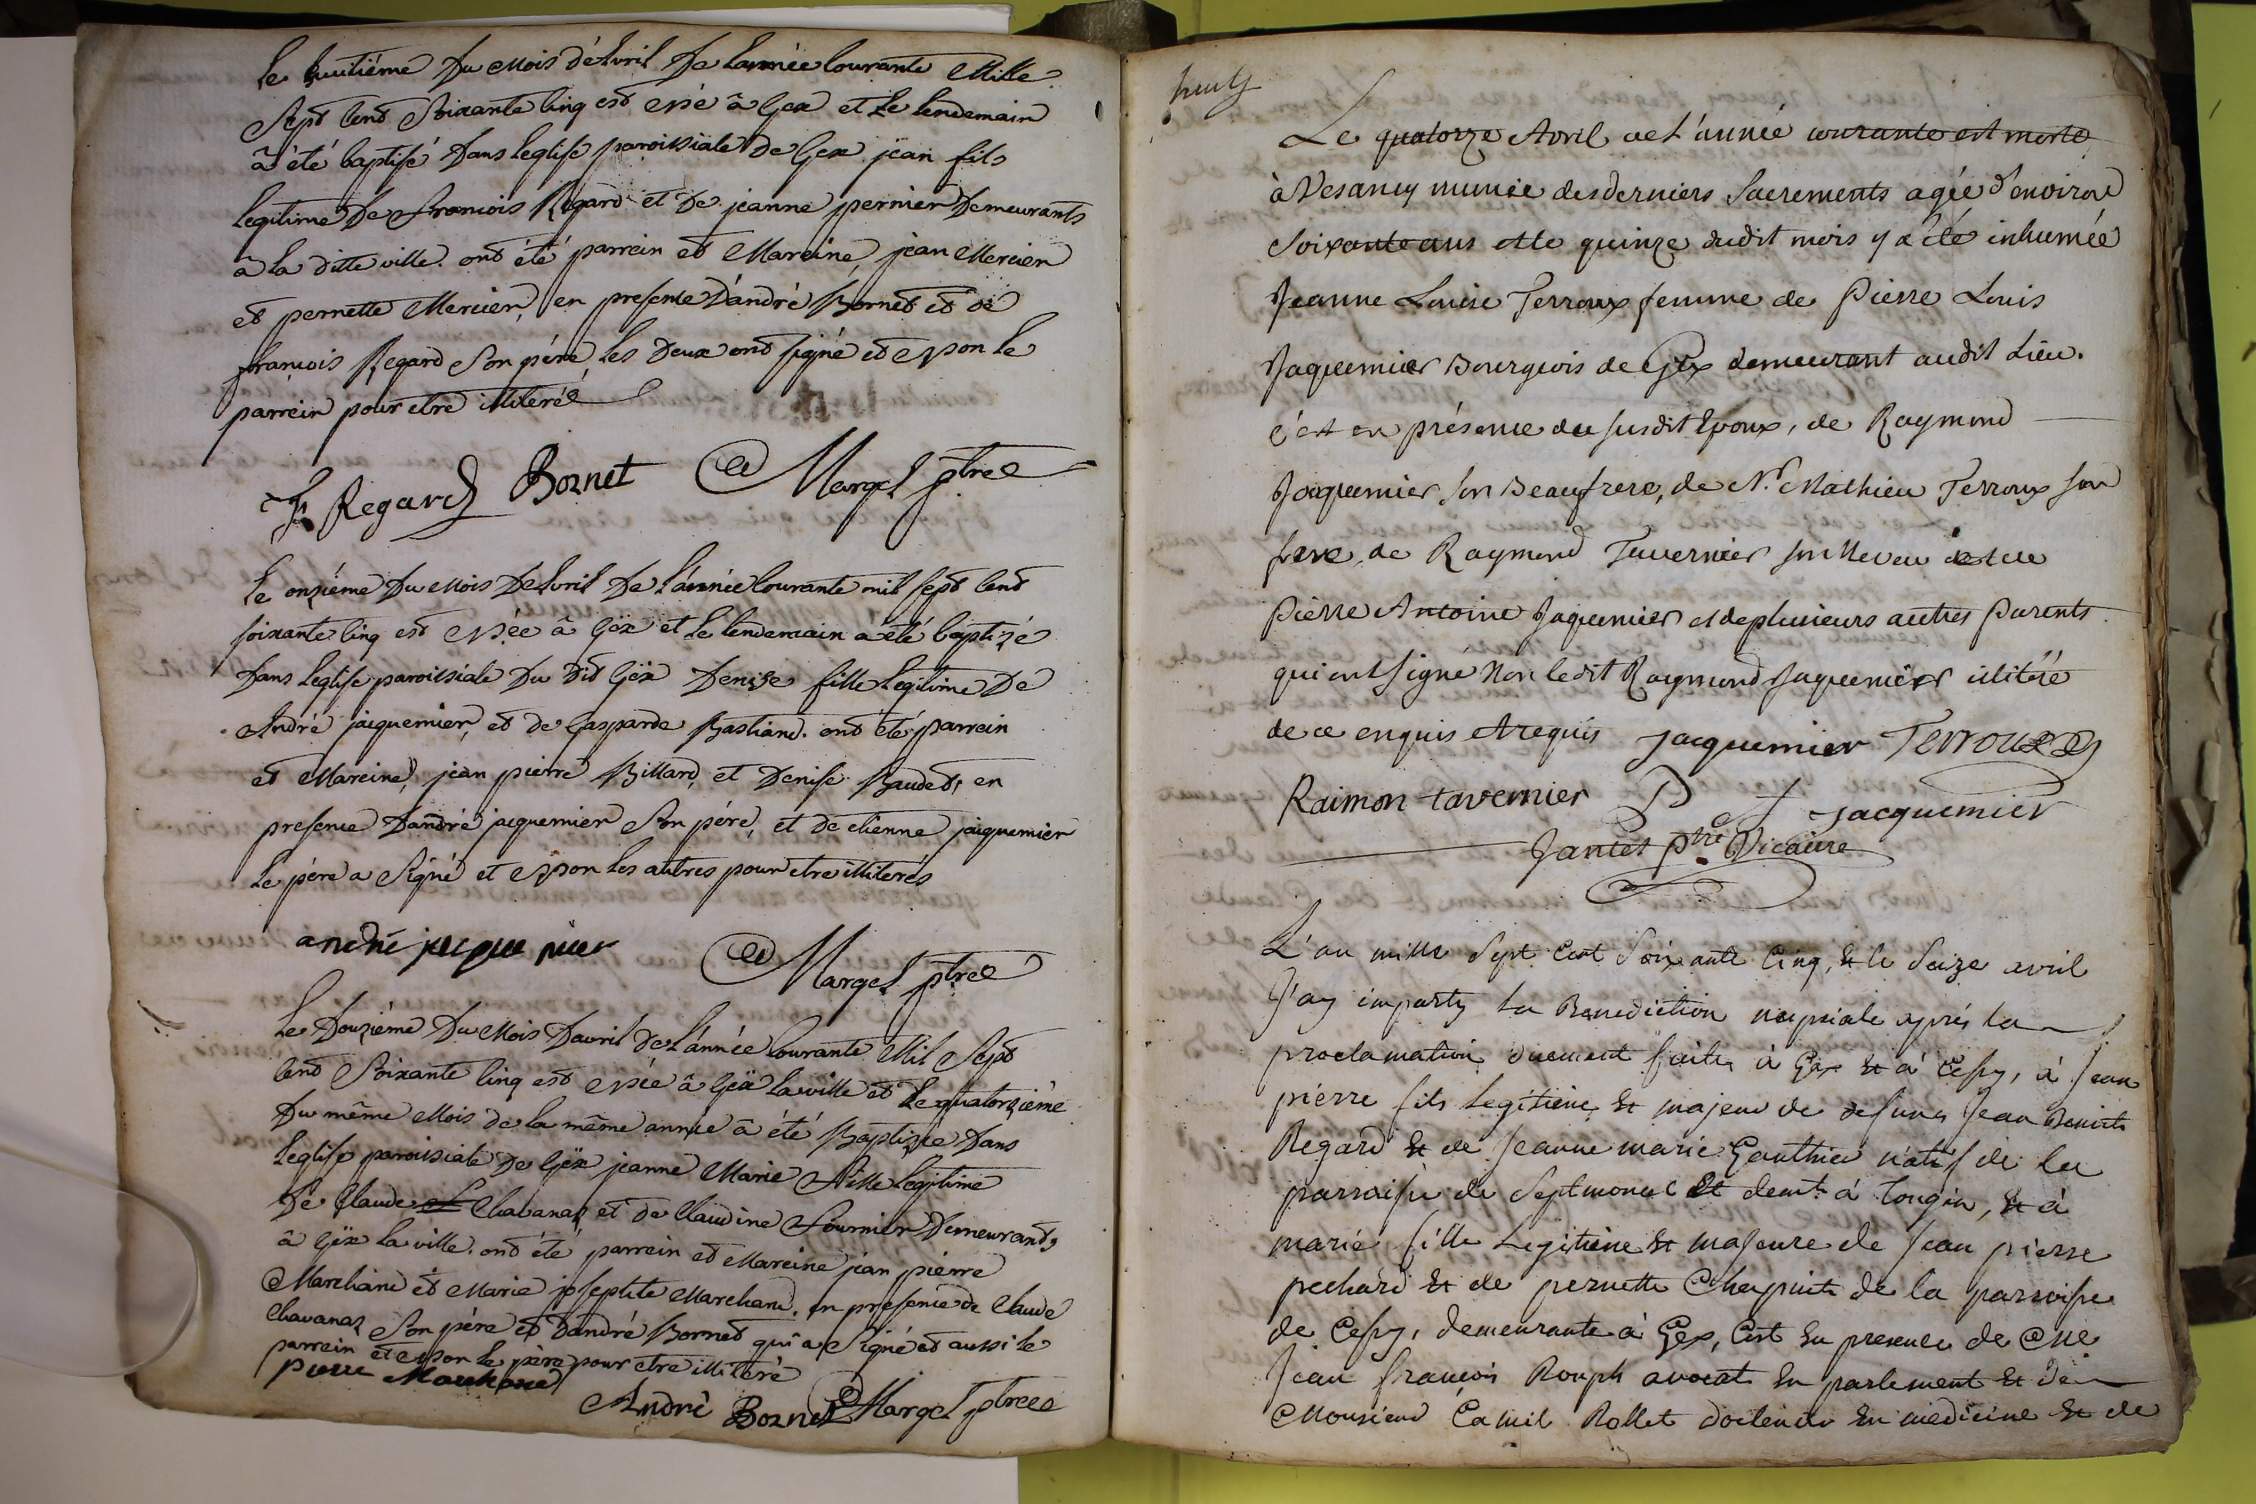 Le huitiéme Du Mois d'Avril De L'année Courante Mille
Sept Cent Soixante Cinq est Né â Gex et Le Lendemain
â été baptisé Dans Leglise paroissiale De Gex jean fils
Legitime De François Regard et De jeanne pernier Demeurants
â la ditte ville. ont été parrein et Mareine jean Mercier
et pernette Mercier, en presence D'andré Bornet et de
françois Regard Son pére, Les Deux ont signé et Non Le
parrein pour etre illiteré
F Regard Bornet Margel ptre
Le onziéme Du Mois D'Avril De L'année Courante mil sept Cent
soixante Cinq est Née â Gëx et Le Lendemain a été baptizé
Dans Leglise paroissiale Du Dit Gëx Denise fille Legitime De
André jacquemier, et de Gasparde Bastian. ont été parrein
et Mareine, jean pierre Billard, et Denise Baudet, en
presence D'andré jacquemier Son pére, et de etienne jacquemier
Le pére a Signé et Non Les autres pour etre illiterés
andré jacque mier Margel ptre
Le Douziéme Du Mois D'avril de L'année Courante Mil Sept
Cent Soixante Cinq est Née â Gëx La ville et Le quatorziéme
Du même Mois de la même année â été Baptizée Dans
Leglise paroissiale De Gëx jeanne Marie Fille Legitime
De Claude Chavanaz et de Claudine Fournier Demeurants
â Gëx La ville. ont été parrein et Mareine jean pierre
Marchand et Marie josephte Marchand. en presence de Claude
Chavanaz Son pére et D'andré Bornet qui a Signé et aussi le
parrein et Non le pére pour etre illiteré
pierre Marchand
André Bornet Margel ptre
Le quatorze Avril de L'année courante est morte
à Vesancy munie des derniers Sacrements agée d'environ
Soixante ans et le quinze dudit mois y a été inhumée
Jeanne Louise Terroux femme de Pierre Louis
Jaquemier Bourgeois de Gex demeurant audit Lieu.
c'est en présence du susdit Epoux, de Raymond
Jaquemier son Beaufrere, de Nr. Mathieu Terroux son
frere, de Raymond Tavernier son Neveu et de
Pierre Antoine Jaquemier et de plusieurs autres Parents
qui ont signé Non ledit Raymond Jaquemier illitéré
de ce enquis et requis jacquemier Terroux
Raimon tavernier P J jacquemier
Jantet ptre Vicaire
L'an mille Sept Cent Soixante Cinq, & le Seize avril
J'ay imparty La Benediction nupsiale aprés la
proclamation duement faite à Gex & à Cessy, à Jean
piérre fils Legitime & majeur de defunt Jean Benoit
Regard & de Jeanne marie Gauthier natif de la
parroisse de Septmoncel & demt. à Tougin, & à
marie fille Legitime & majeure de Jean pierre
pechard & de pernette Chapuit de la parroisse
de Cessy, demeurante à Gex, C'est En presence de Me
Jean françois Rouph avocat En parlement & de
Monsieur Camil Rollet docteur En medicine & de